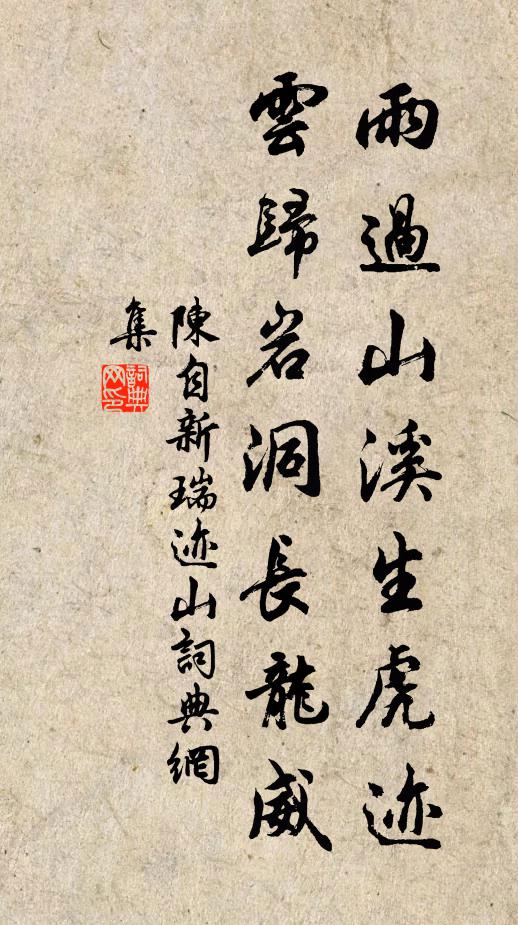 雨過山溪生虎迹
雲歸岩洞長龍威
陳自新瑞迹山詞典網
集
詞典
网印